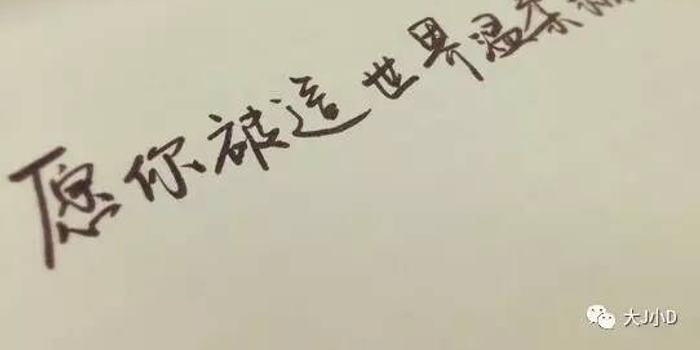 愿你被這世界温柔
大J小D